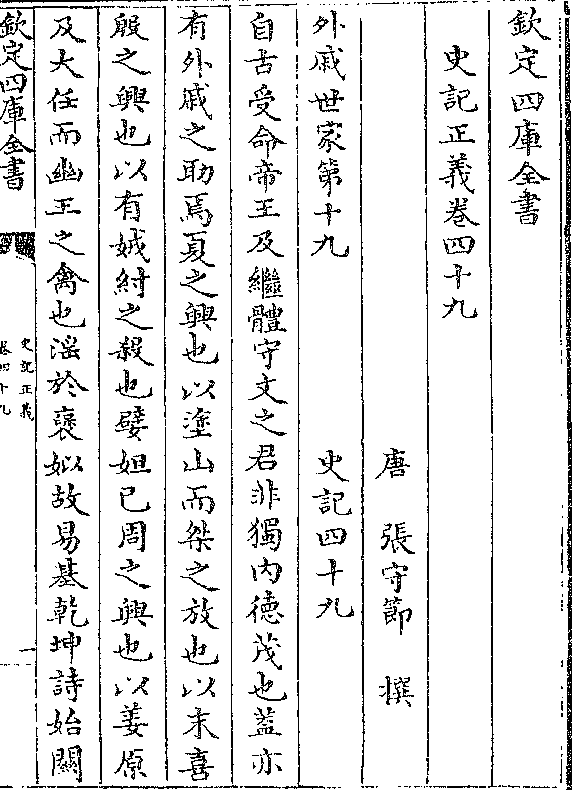 欽定四庫全書
史記正義卷四十九
唐 張守節 撰
外戚世家第十九 史記四十九
自古受命帝王及繼體守文之君非獨内徳茂也葢亦
有外戚之助焉夏之興也以塗山而桀之放也以末喜
殷之興也以有娀紂之殺也嬖妲已周之興也以姜原
及大任而幽王之禽也滛於褒姒故易基乾坤詩始關
欽定四庫全書
史記正義
卷四十九
一